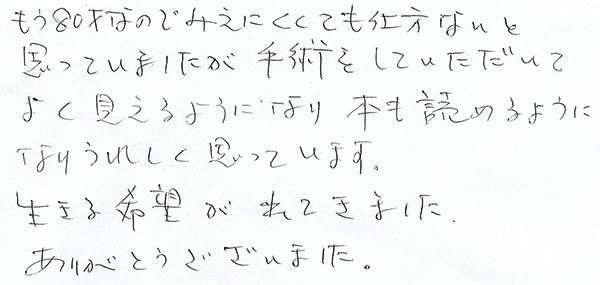 もう80才なのでみえにくくても仕方ないと
思っていましたが手術をしていただいて
よく見えるようになり本も読めるように
なりうれしく思っています。
生きる希望がわいてきました。
ありがとうございました。